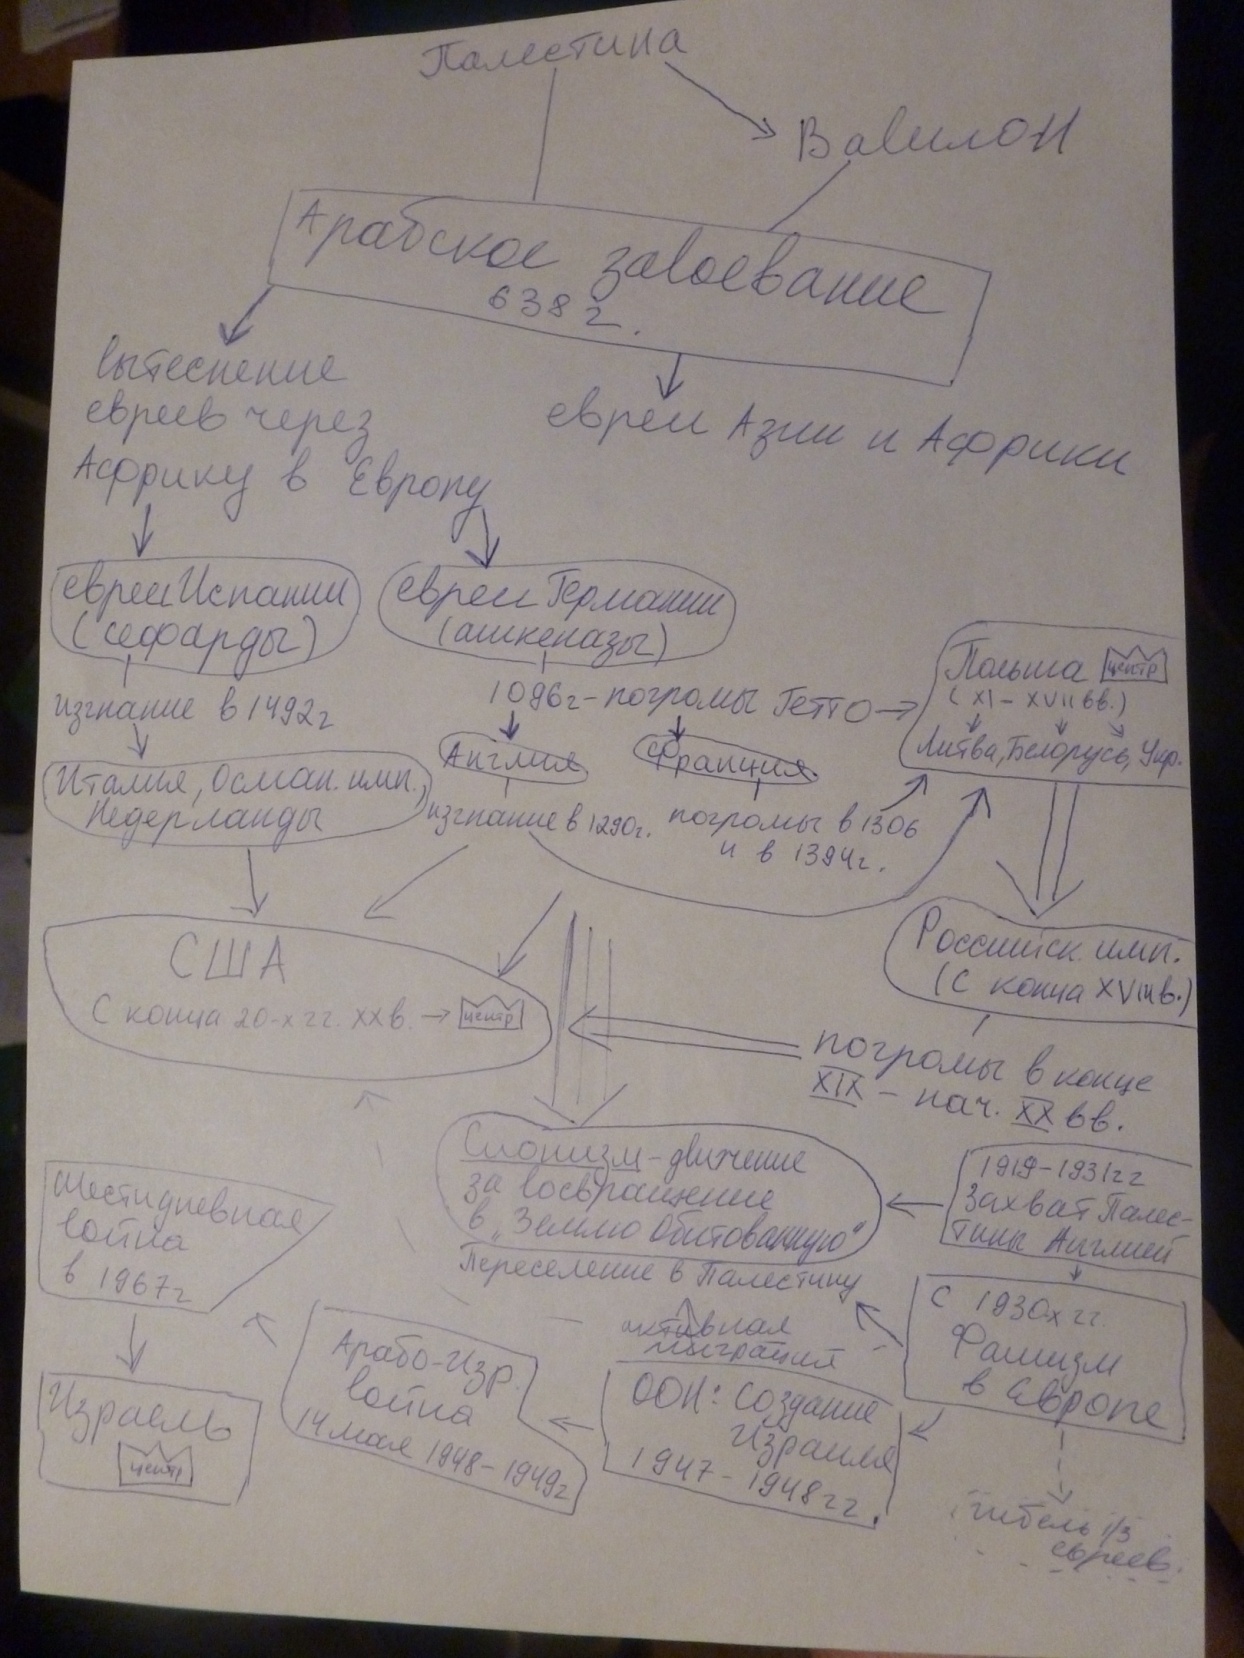 Палестина
Вавилон
Арабское завоевание
638 г.
вытеснение
евреев через
Африку в Европу
евреи Азии и Африки
евреи Испании
(сефарды)
евреи Германии
(ашкеназы)
изгнание в 1492г
1096г - погромы Гетто
Польша центр
(XI - XVII вв.)
Литва, Белорусь, Укр.
Англия
Франция
Италия, Осман. имп.,
Недерланды
изгнание в 1290г.
погромы в 1306
и в 1394г.
США
С конца 20-х гг. XX в. центр
Российск. имп.
(с конца XVIII в.)
погромы в конце
XIX - нач. XX вв.
Сионизм - движение
за восвращение
в "Землю Обитованную"
Переселение в Палестину
1919-1931гг
Захват Палес-
тины Англией
Шестидневная
война
в 1967г
С 1930х гг.
Фашизм
в Европе
активная
миграция
Арабо-Изр.
война
14 мая 1948-1949г
ООН: Создание
Израиля
1947 - 1948гг.
Израель
центр
гибель 1/3
евреев.